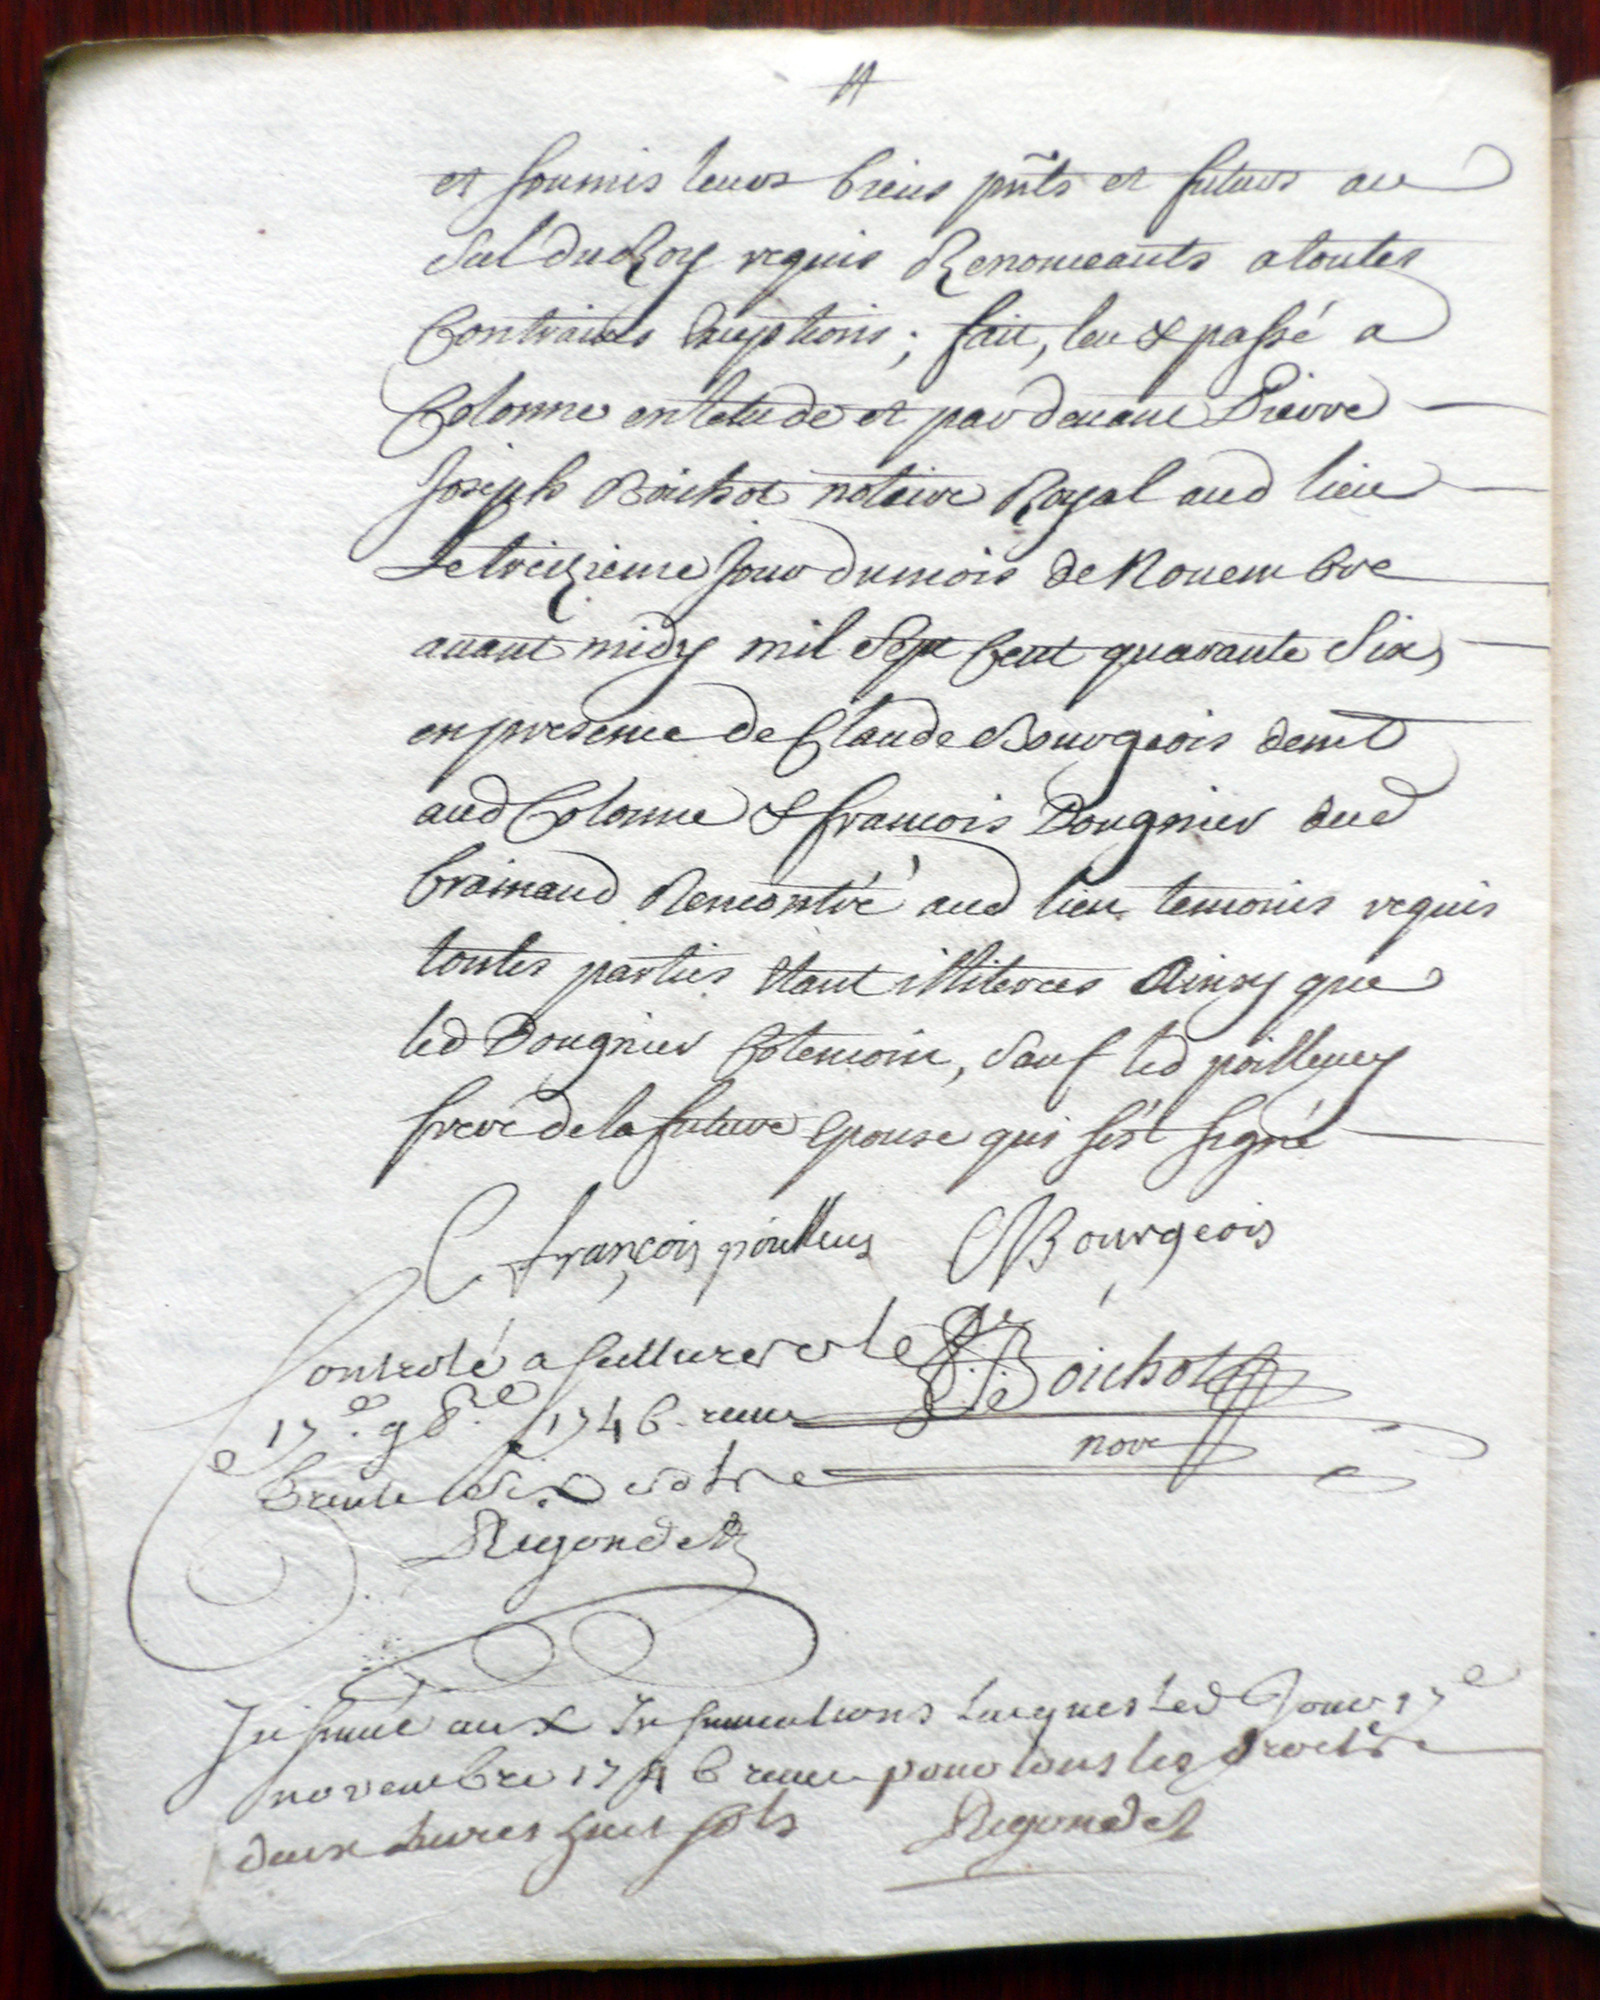 et soumis leurs biens pñts et futurs au
Scel du Roy requis Renonceants a toutes
Contraires exceptions ; fait, leu & passé a
Colonne en letude et par devant Pierre
Joseph Boichot notaire Royal aud lieu
Le treizieme jour du mois de Novembre
avant midy mil Sept Cent quarante Six,
en presence de Claude Bourgeois demt
aud Colonne & francois Dougnier dud
brainand Rencontré aud lieu temoins requis
toutes parties etant illiterees Ainsy que
led Dougnier Cotemoin, Sauf led poilleney
frere de la future epouse qui s'est signé
françois poilleney Bourgeois
Controlé a Sellieres le
17e. 9bre. 1746 receu
trente Six sols
PJ Boichot
nore
Rigondet
Insinué aux Insinuations Laiques led Jour 17e
novembre 1746 receu pour tous les droits
deux Livres huit sols Rigondet